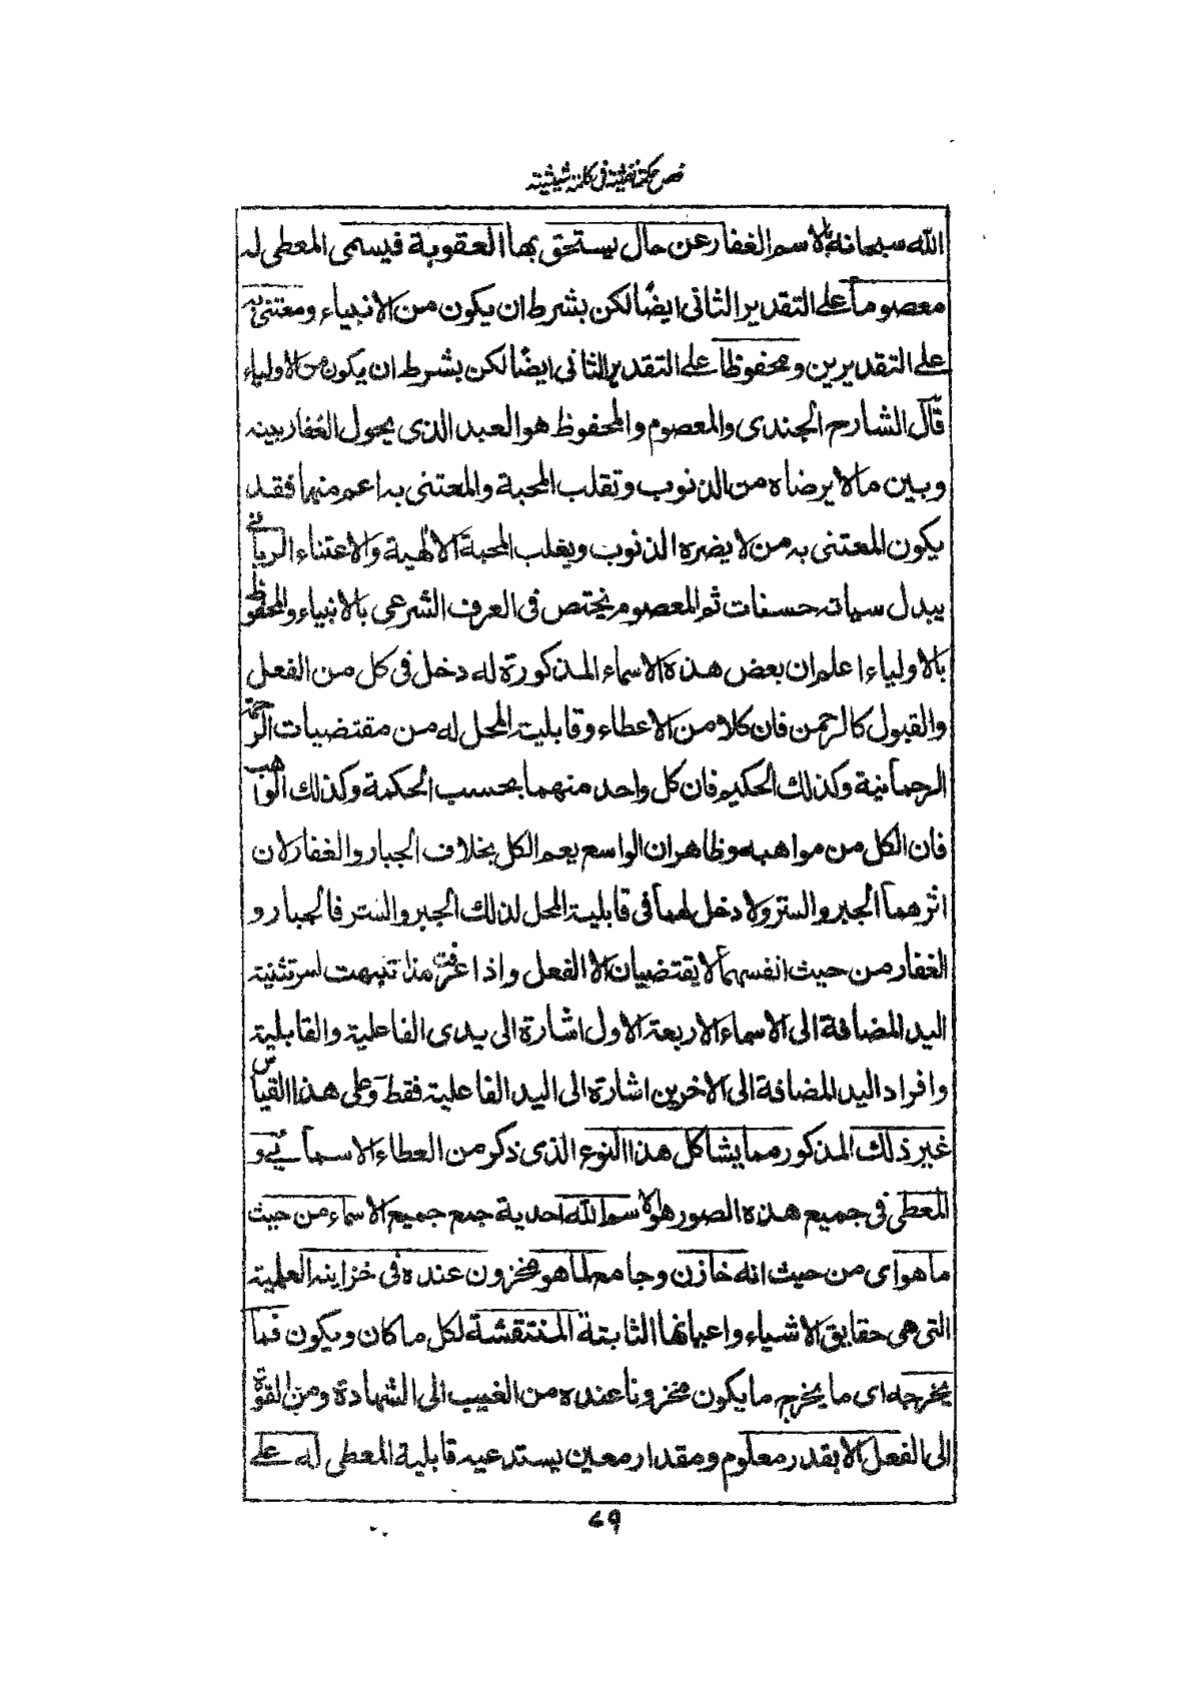 فص حكمة نفثية في كلمة شيثية
الله سبحانه بالاسم الغفار عن حال يستحق بها العقوبة فيسمى المعطى له
معصوما على التقدير الثانى ايضًا لكن بشرط ان يكون من الانبياء ومعتنى به
على التقديرين ومحفوظا على التقدير الثانى ايضًا لكن بشرط ان يكون من الاولياء
قال الشارح الجندى والمعصوم والمحفوظ هو العبد الذى يحول الغفار بينه
وبين ما لا يرضاه من الذنوب وتقلب المحبة والمعتنى به اعم منهما فقد
يكون المعتنى به من لا يضره الذنوب ويغلب المحبة الالهية والاعتناء الربانے
يبدل سياته حسنات ثم المعصوم يختص فى العرف الشرعى بالانبياء والمحفوظ
بالاولياء اعلم ان بعض هذه الاسماء المذكورة له دخل فى كل من الفعل
والقبول كالرحمن فان كلا من الاعطاء وقابلية المحل له من مقتضيات الرحمة
الرحمانية وكذلك الحكيم فان كل واحد منهما بحسب الحكمة وكذلك الواهب
فان الكل من مواهبه وظاهر ان الواسع يعم الكل بخلاف الجبار والغفار لان
اثرهما الجبر والستر ولا دخل لهما فى قابلية المحل لذلك الجبر والستر فالجبار و
الغفار من حيث انفسهما لا يقتضيان الا الفعل واذا عرفت هذا تنبهت لسر تثنية
اليد المضافة الى الاسماء الاربعة الاول اشارة الى يدى الفاعلية والقابلية
وافراد اليد المضافة الى الاخرين اشارة الى اليد الفاعلية فقط وعلى هذا القياس
غير ذلك المذكور مما يشاكل هذا النوع الذى ذكر من العطاء الاسمائے و
المعطى فى جميع هذه الصور هو الاسم الله احدية جمع جميع الاسماء من حيث
ما هو اى من حيث انه خازن وجامع لما هو مخزون عنده فى خزاينه العلمية
التى هى حقايق الاشياء واعيانها الثابتة المنتقشة لكل ما كان ويكون فما
يخرجه اى ما يخرج ما يكون مخزونا عنده من الغيب الى الشهادة ومن القوة
الى الفعل الا بقدر معلوم ومقدار معين يستدعيه قابلية المعطى له على
٦٩